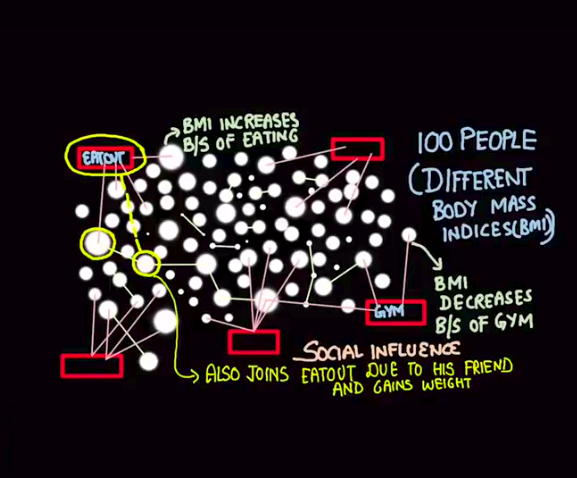 BMI INCREASES
B/S OF EATING
EATOUT
100 PEOPLE
(DIFFERENT
BODY MASS
INDICES(BMI))
BMI
DECREASES
B/S OF GYM
GYM
SOCIAL INFLUENCE
ALSO JOINS EATOUT DUE TO HIS FRIEND
AND GAINS WEIGHT